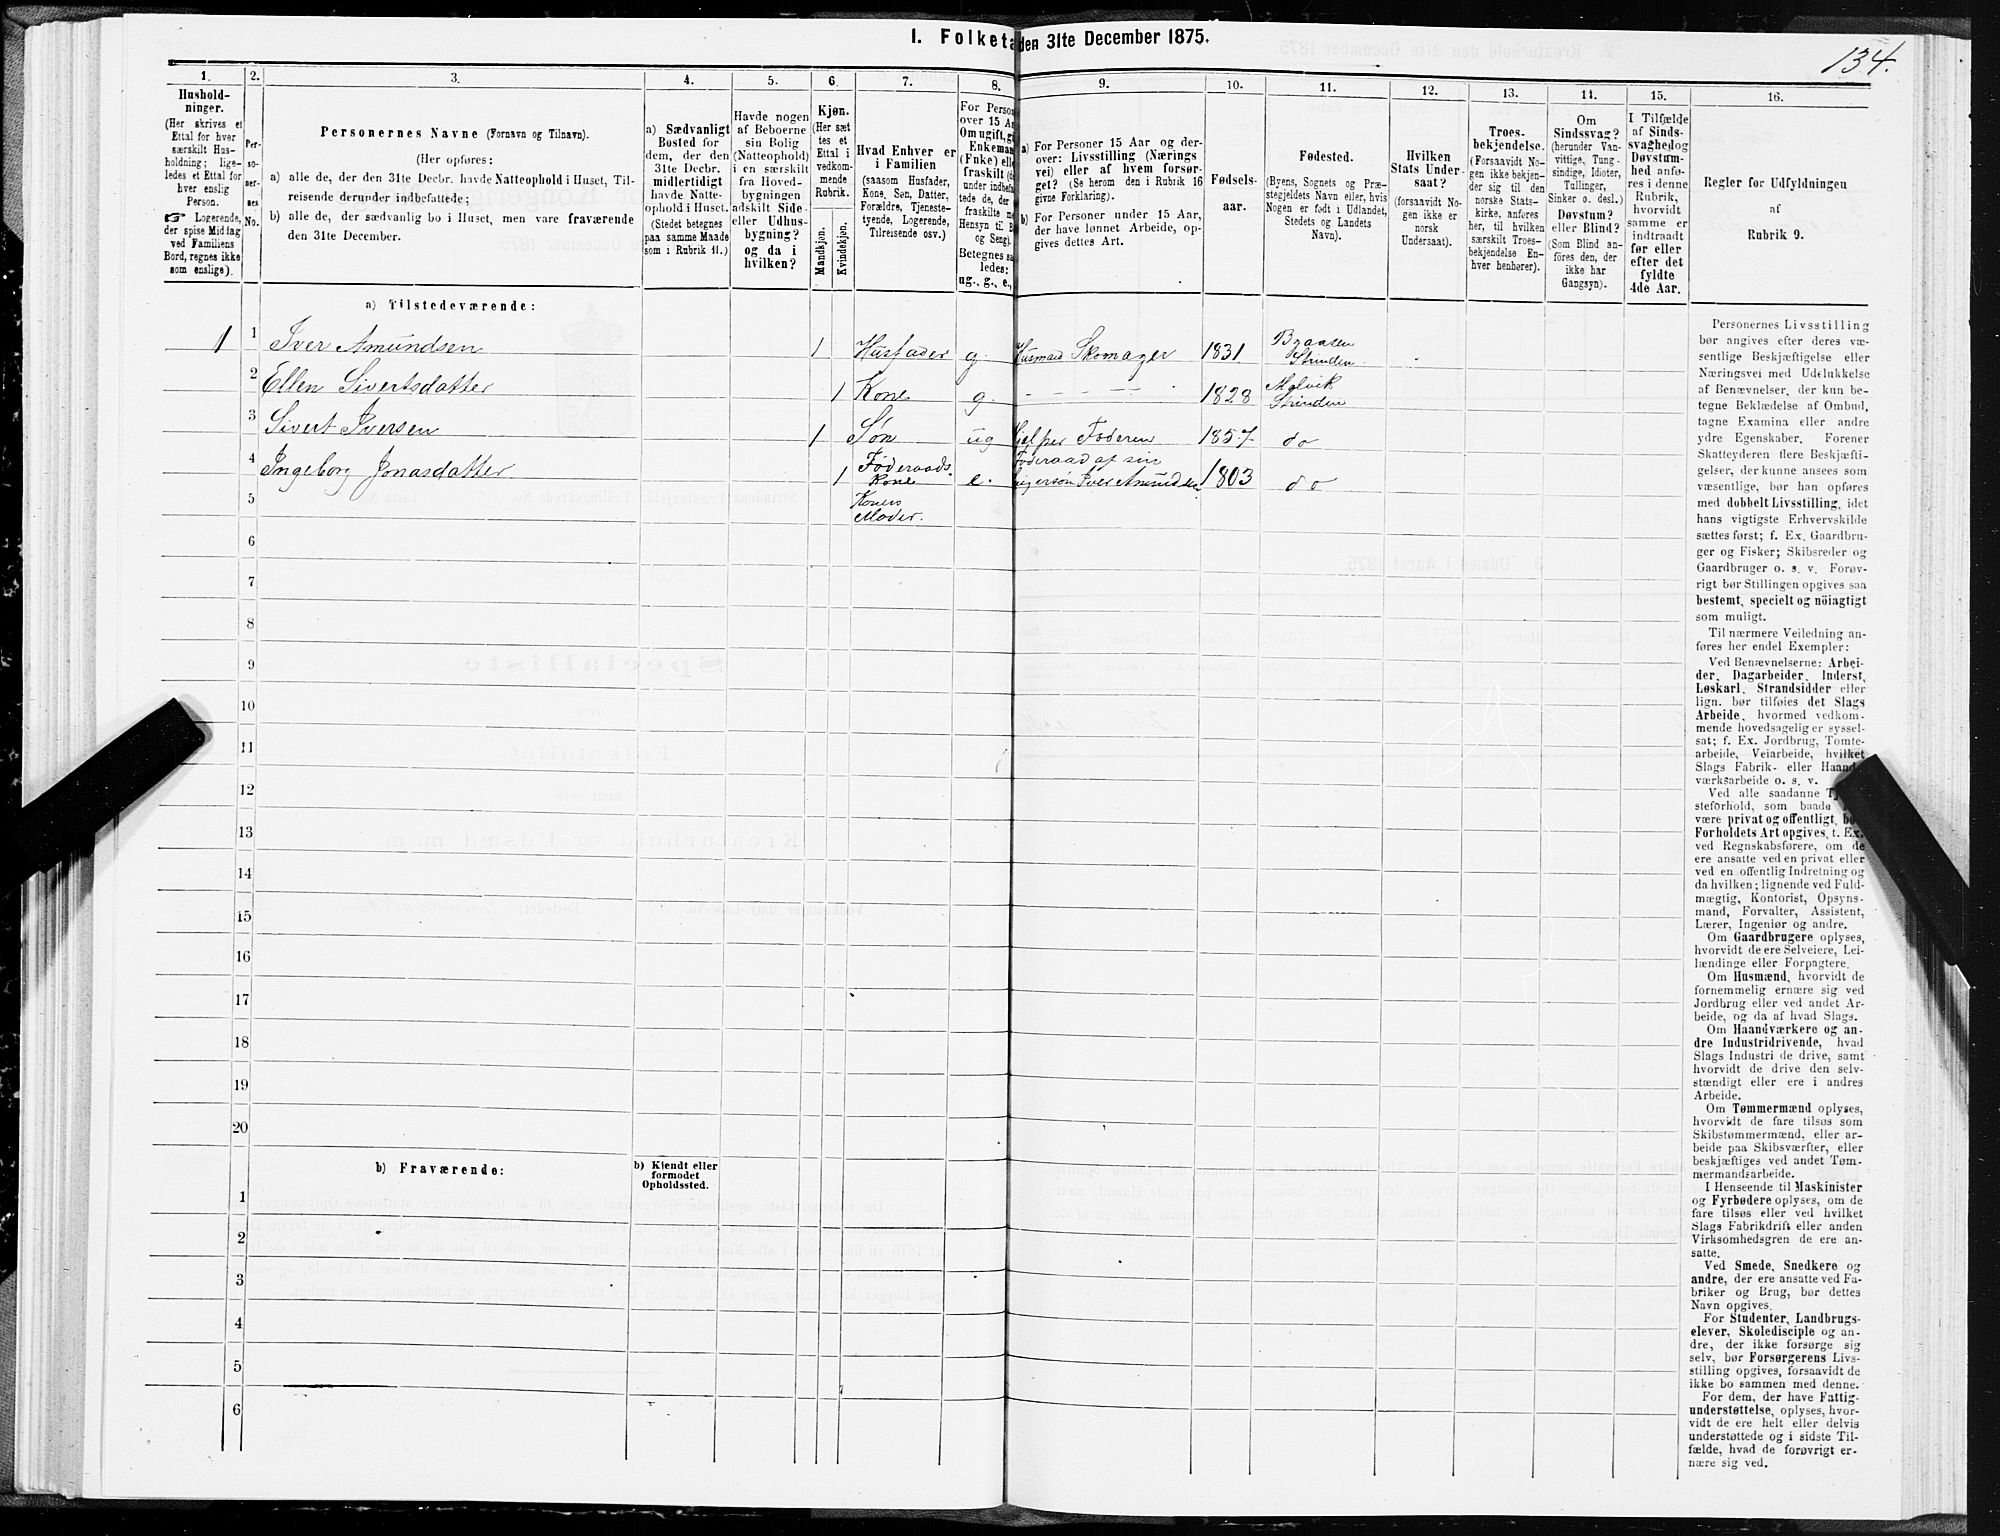 I. Folketa den 31te December 1875.
134.
1.
2.
3.
4.
5.
6.
7.
8.
9.
10.
11.
12.
13.
14.
15.
16.
Hushold-
ninger.
(Her skrives et
Ettal for hver
særskilt Hus-
holdning; lige-
ledes et Ettal for
hver enslig
Person.
☞ Logerende,
der spise Middag
ved Familiens
Bord, regnes ikke
som enslige).
Per-
so-
ner-
nes
No.
Personernes Navne (Fornavn og Tilnavn).
(Her opføres:
a) alle de, der den 31te Decbr. havde Natteophold i Huset, Til-
reisende derunder indbefattede;
b) alle de, der sædvanlig bo i Huset, men vare fraværende
den 31te December.
a) Sædvanligt
Bosted for
dem, der den
31te Decbr.
midlertidigt
havde Natte-
ophold i Huset.
(Stedet betegnes
paa samme Maade
som i Rubrik 11.)
Havde nogen
af Beboerne
sin Bolig
(Natteophold)
i en særskilt
fra Hoved-
bygningen
adskilt Side-
eller Udhus-
bygning?
og da i
hvilken?
Kjøn.
(Her sæt
tes et
Ettal i
vedkom-
mende
Rubrik.
Mandkjøn.
Kvindekjøn.
Hvad Enhver er
i Familien
(saasom Husfader,
Kone, Søn, Datter,
Forældre, Tjeneste-
tyende, Logerende,
Tilreisende osv.)
For Person
over 15 A
Om ugift, gi
Enkeman
(Fnke) elle
fraskilt (d
under indbefa
tede de, der
fraskilte m
Hensyn ti. B
og Seng).
Betegnes sa
ledes:
ug., g., e.,
a) For Personer 15 Aar og der-
over: Livsstilling (Nærings
vei) eller af hvem forsør-
get? (Se herom den i Rubrik 16
givne Forklaring).
b) For Personer under 15 Aar,
der have lønnet Arbeide, op-
gives dettes Art.
Fødsels-
aar.
Fødested.
(Byens, Sognets og Præ-
stegjeldets Navn eller, hvis
Nogen er født i Udlandet,
Stedets og Landets
Navn).
Hvilken
Stats Under-
saat?
(forsaavidt No-
gen ikke er
norsk
Undersaat).
Troes-
bekjendelse.
(Forsaavidt No-
gen ikke bekjen-
der sig til den
norske Stats-
kirke, anføres
her, til hvilken
særskilt Troes-
bekjendelse En-
hver henhører).
Om
Sindssvag?
(herunder Van-
vittige, Tung-
sindige, Idioter,
Tullinger,
Sinker o. desl.)
Døvstum?
eller Blind?
(Som Blind an-
føres den, der
ikke har
Gangsyn).
I Tilfælde
af Sinds-
svaghed og
Døvstum-
hed anfø-
res i denne
Rubrik,
hvorvidt
samme er
indtraadt
før eller
efter det
fyldte
4de Aar.
Regler for Udfyldningen
af
Rubrik 9.
a) Tilstedeværende:
1 1 Iver Amundsen 1 Husfader g. Husmand Skomager 1831 Braaten Strinden
2 Ellen Sivertsdatter 1 Kone g. 1828 Malvik Strinden
3 Sivert Iversen 1 Søn ug Hjelper Faderen 1857 do
4 Ingeborg Jonasdatter 1 Føderaads- Kone e. Føderaad af sin Iver Amundsen 1803 do
5 Kones Moder.
6
7
8
9
10
11
12
13
14
15
16
17
18
19
20
b) Fraværende:
b) Kjendt eller
formodet
Opholdssted.
1
2
3
4
5
6
Personernes Livsstilling
bør angives efter deres væ-
sentlige Beskjæftigelse eller
Næringsvei med Udelukkelse
af Benævnelser, der kun be-
tegne Beklædelse af Ombud,
tagne Examina eller andre
ydre Egenskaber. Forener
Skatteyderen flere Beskjæfti-
gelser, der kunne ansees som
væsentlige, bør han opføres
med dobbelt Livsstilling, idet
hans vigtigste Erhvervskilde
sættes først; f. Ex. Gaardbru-
ger og Fisker; Skibsreder og
Gaardbruger o. s. v. Forøv-
rigt bør Stillingen opgives saa
bestemt, specielt og nöiagtigt
som muligt.
Til nærmere Veiledning an-
føres her endel Exempler:
Ved Benævnelserne: Arbei-
der, Dagarbeider, Inderst,
Løskarl, Strandsidder eller
lign. bør tilføies det Slags
Arbeide, hvormed vedkom-
mende hovedsagelig er syssel-
sat; f. Ex. Jordbrug, Tomte-
arbeide, Veiarbeide, hvilket
Slags Fabrik- eller Haand-
værksarbeide o. s. v.
Ved alle saadanne Tj
steforhold, som baade
være privat og offentligt, bø
Forholdets Art opgives, t. Ex.
ved Regnskabsførere, om de
ere ansatte ved en privat eller
ved en offentlig Indretning og
da hvilken; lignende ved Fuld-
mægtig, Kontorist, Opsyns-
mand, Forvalter, Assistent,
Lærer, Ingeniør og andre.
Om Gaardbrugere oplyses,
hvorvidt de ere Selveiere, Lei-
lændinge eller Forpagtere.
Om Husmænd, hvorvidt de
fornemmelig ernære sig ved
Jordbrug eller ved andet Ar-
beide, og da af hvad Slags.
Om Haandværkere og an-
dre Industridrivende, hvad
Slags Industri de drive, samt
hvorvidt de drive den selv-
stændigt eller ere i andres
Arbeide.
Om Tømmermænd oplyses,
hvorvidt de fare tilsøs som
Skibstømmermænd, eller ar-
beide paa Skibsværfter, eller
beskjæftiges ved andet Tøm-
mermandsarbeide.
I Henseende til Maskinister
og Fyrbødere oplyses, om de
fare tilsøs eller ved hvilket
Slags Fabrikdrift eller anden
Virksomhedsgren de ere an-
satte.
Ved Smede, Snedkere og
andre, der ere ansatte ved Fa-
briker og Brug, bør dettes
Navn opgives.
For Studenter, Landbrugs-
elever, Skoledisciple og an-
dre, der ikke forsørge sig
selv, bør Forsørgerens Livs-
stilling opgives, forsaavidt de
ikke bo sammen med denne.
For dem, der have Fattig-
understøttelse, oplyses, hvor-
vidt de ere helt eller delvis
understøttede og i sidste Til-
fælde, hvad de forøvrigt er-
nære sig ved.